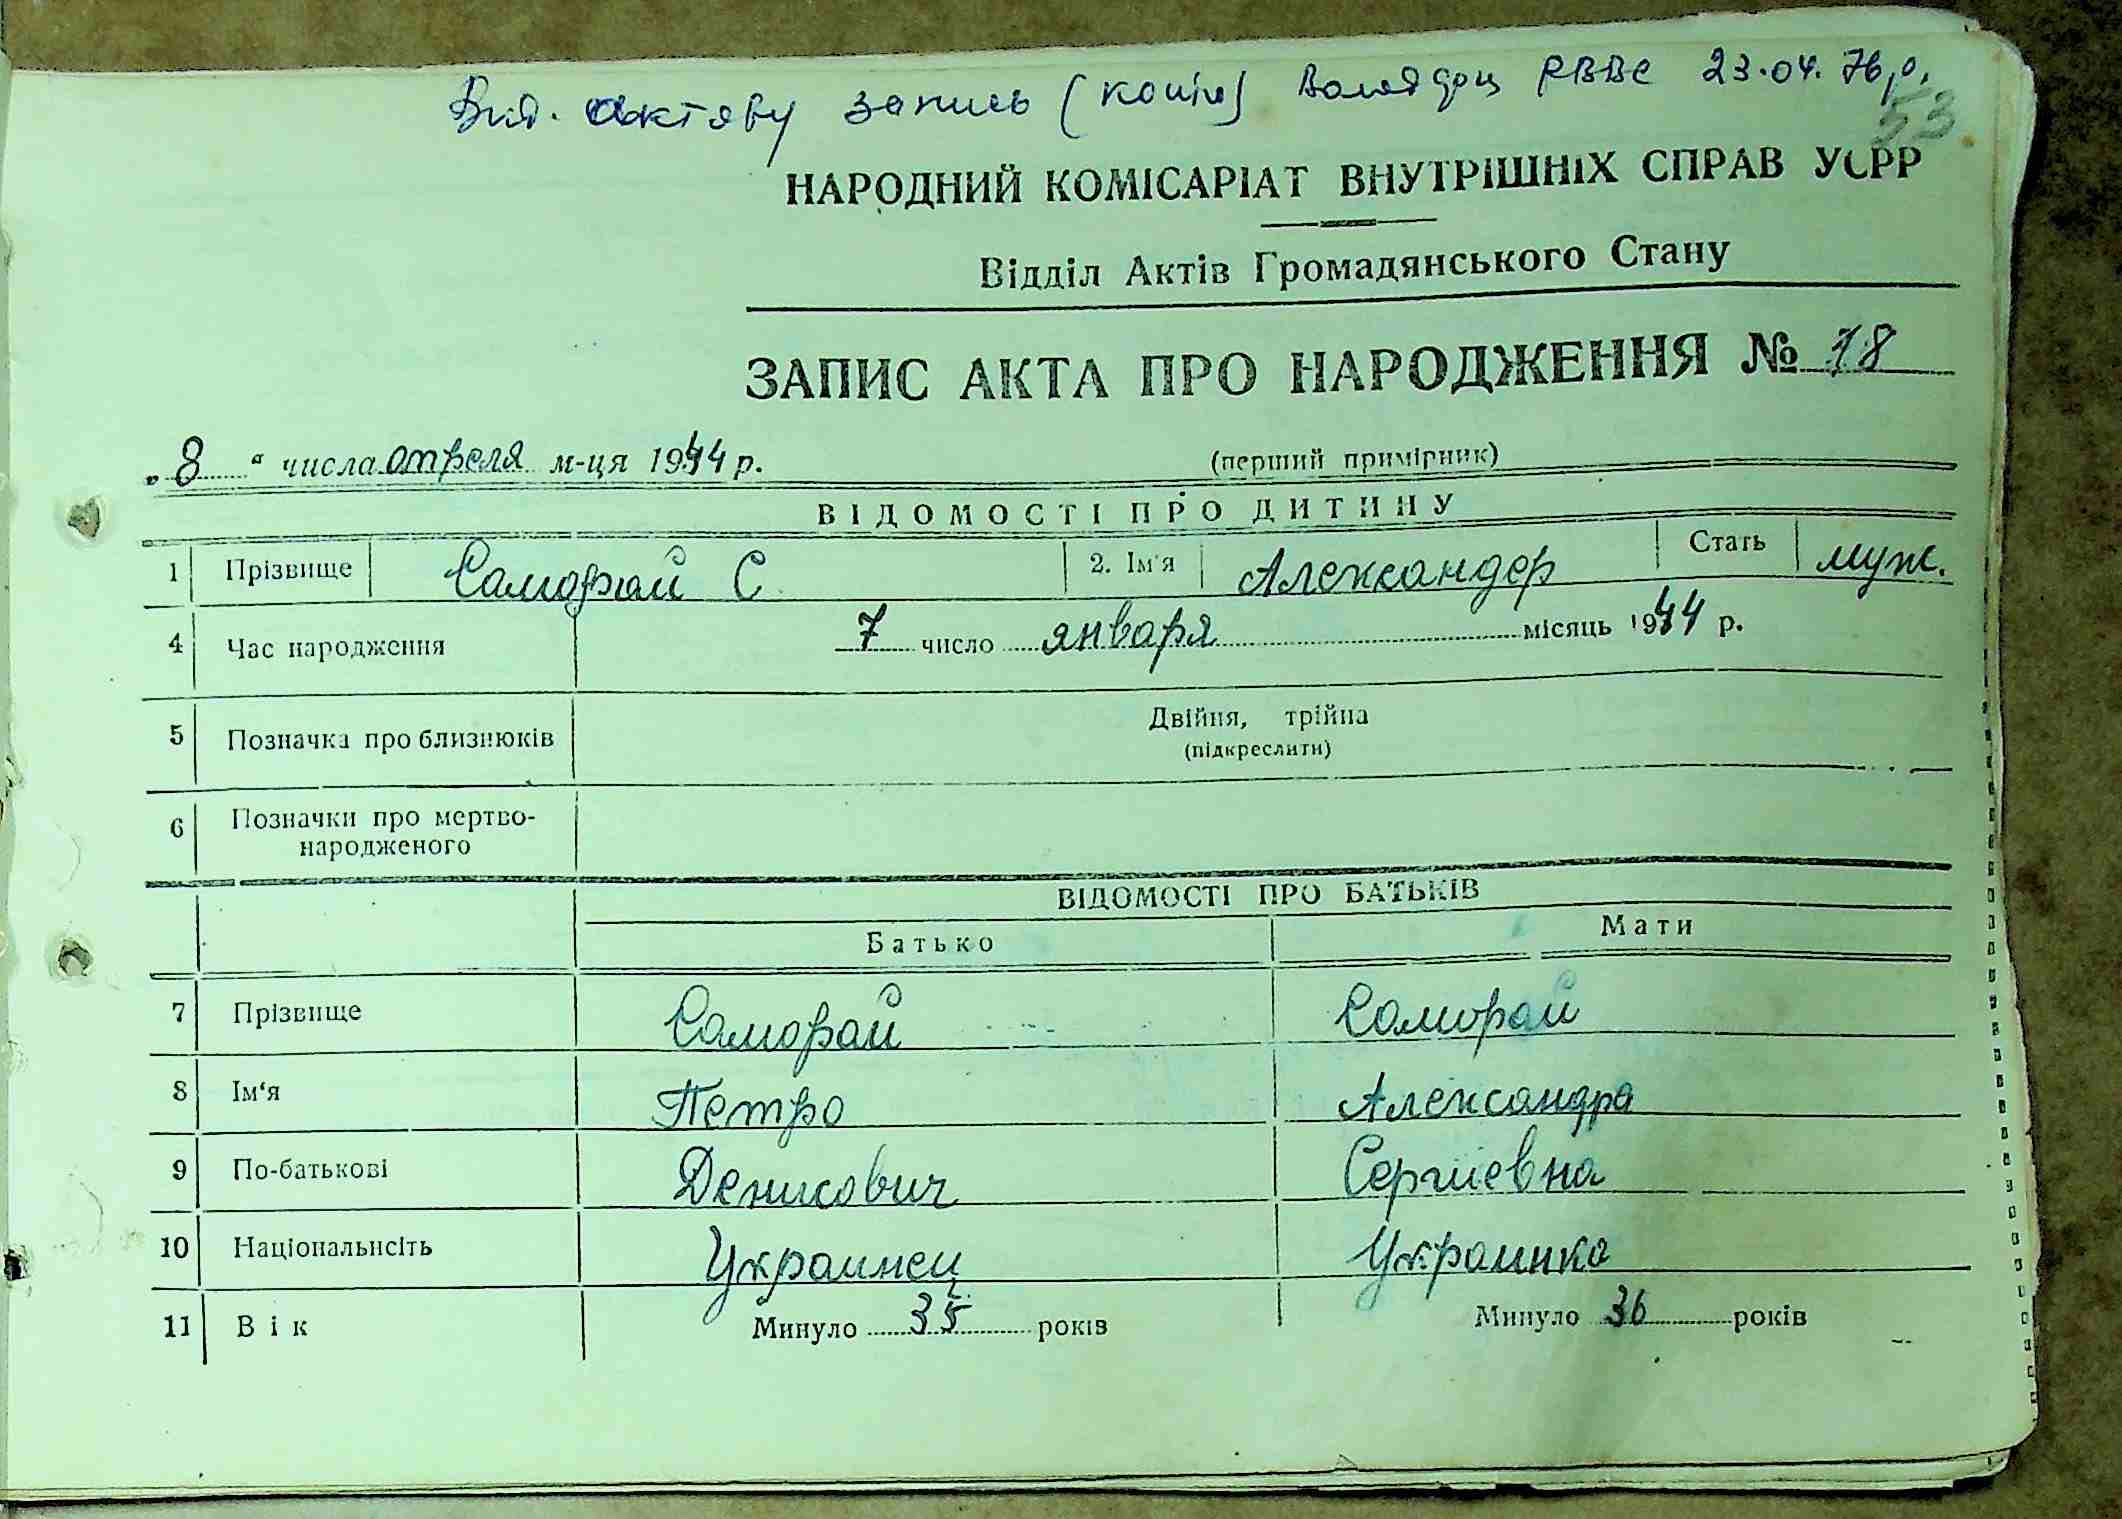 Вид. актову запись (копію) РВВС 23.04.76 р.
53
НАРОДНИЙ КОМІСАРІАТ ВНУТРІШНІХ СПРАВ УСРР
Відділ Актів Громадянського Стану
ЗАПИС АКТА ПРО НАРОДЖЕННЯ № 18
„ 8 “ числа апреля м-ця 1944 р. (перший примірник)
ВІДОМОСТІ ПРО ДИТИНУ
1 Прізвище Саморай С 2. Ім'я Александер Стать муж.
4 Час народження 7 число января місяць 1944 р.
5 Позначка про близнюків Двійня, трійна
(підкреслити)
6 Позначки про мертво-
народженого
ВІДОМОСТІ ПРО БАТЬКІВ
Батько Мати
7 Прізвище Саморай Саморай
8 Ім'я Петро Александра
9 По-батькові Денисович Сергиевна
10 Національнсіть Украинец Украинка
11 Вік Минуло 35 років Минуло 36 років